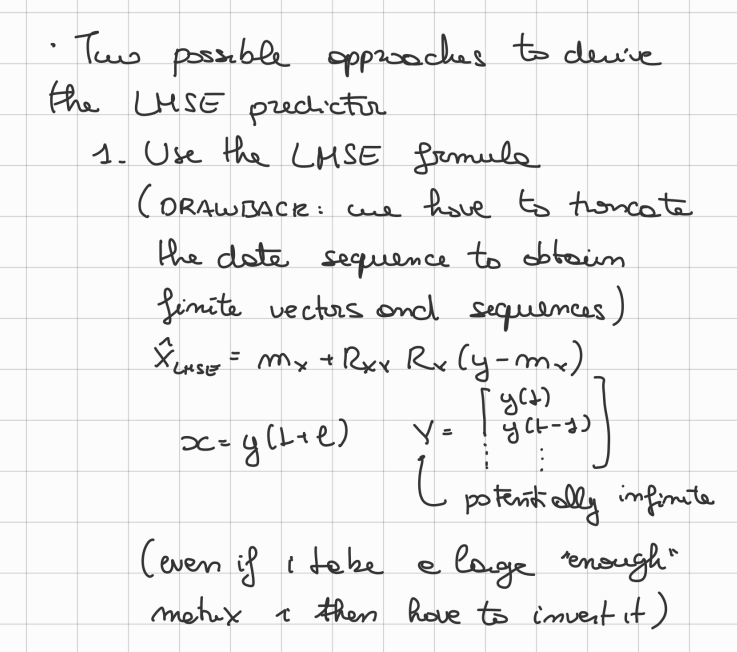 · Two possible approaches to derive
the LMSE predictor
1. Use the LMSE formula
(DRAWBACK: we have to troncate
the data sequence to obtain
finite vectors and sequences)
x̂_LMSE = m_x + R_xy R_y (y - m_x)
x = y(t+l) Y = [ y(t)
y(t-1)
⋮ ⋮ ]
potentially infinite
(even if i take a large "enough"
matrix i then have to invert it)